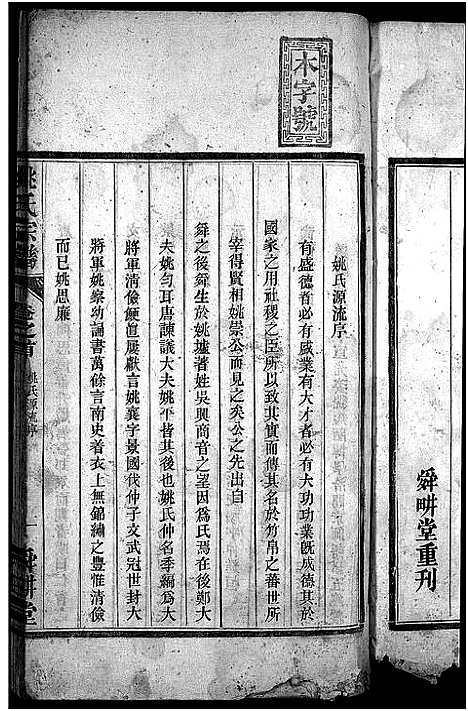 舜畊堂重刊
木字號
姚氏源流序
有盛德者必有盛業有大才者必有大功功業既成德其於
國家之用社稷之臣所以致其實而傳其名於竹帛之蕃世所
宰得賢相姚崇公而見之矣公之先出自
舜之後舜生於姚墟著姓吳興商音之望因為氏焉在後鄭大
夫姚勻耳唐諫議大夫姚平皆其後也姚氏仲名季綱為大
將軍清儉便直屢獻言姚襄字景國伐仲子文武冠世封大
將軍姚察幼誦書萬餘言南史着衣上無錦繡之豊惟清儉
而已姚思廉
姚氏宗譜
卷之首
姚氏源流序
一
舜畊堂